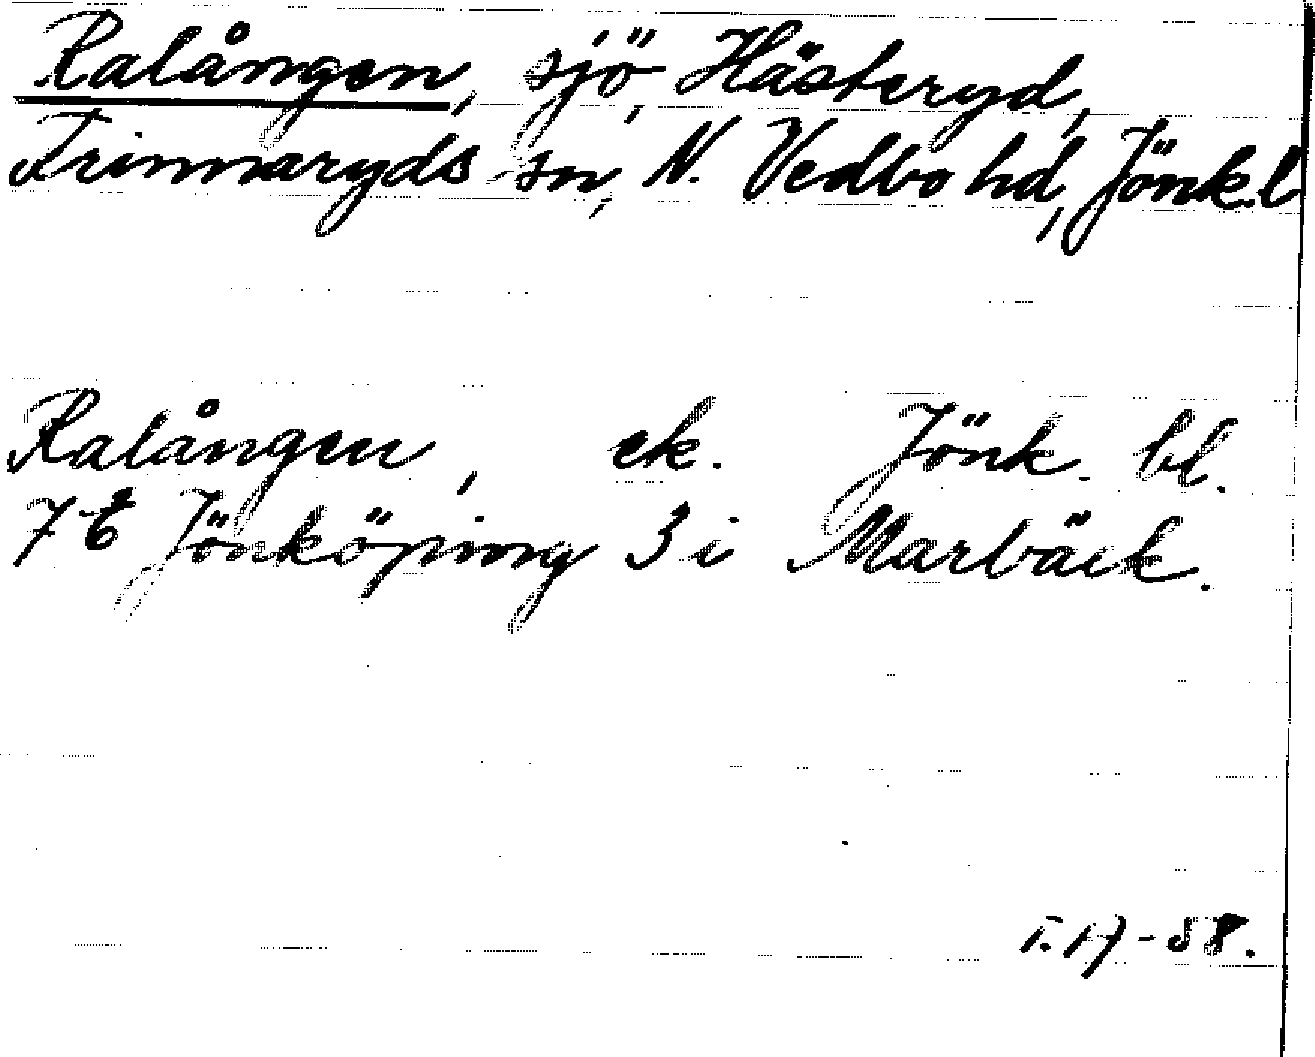 Ralången, sjö, Hästeryd,
Frinnaryds sn, N. Vedbo hd, Jönk.l
Ralången, ek. Jönk. bl.
7E Jönköping 3 i Marbäck.